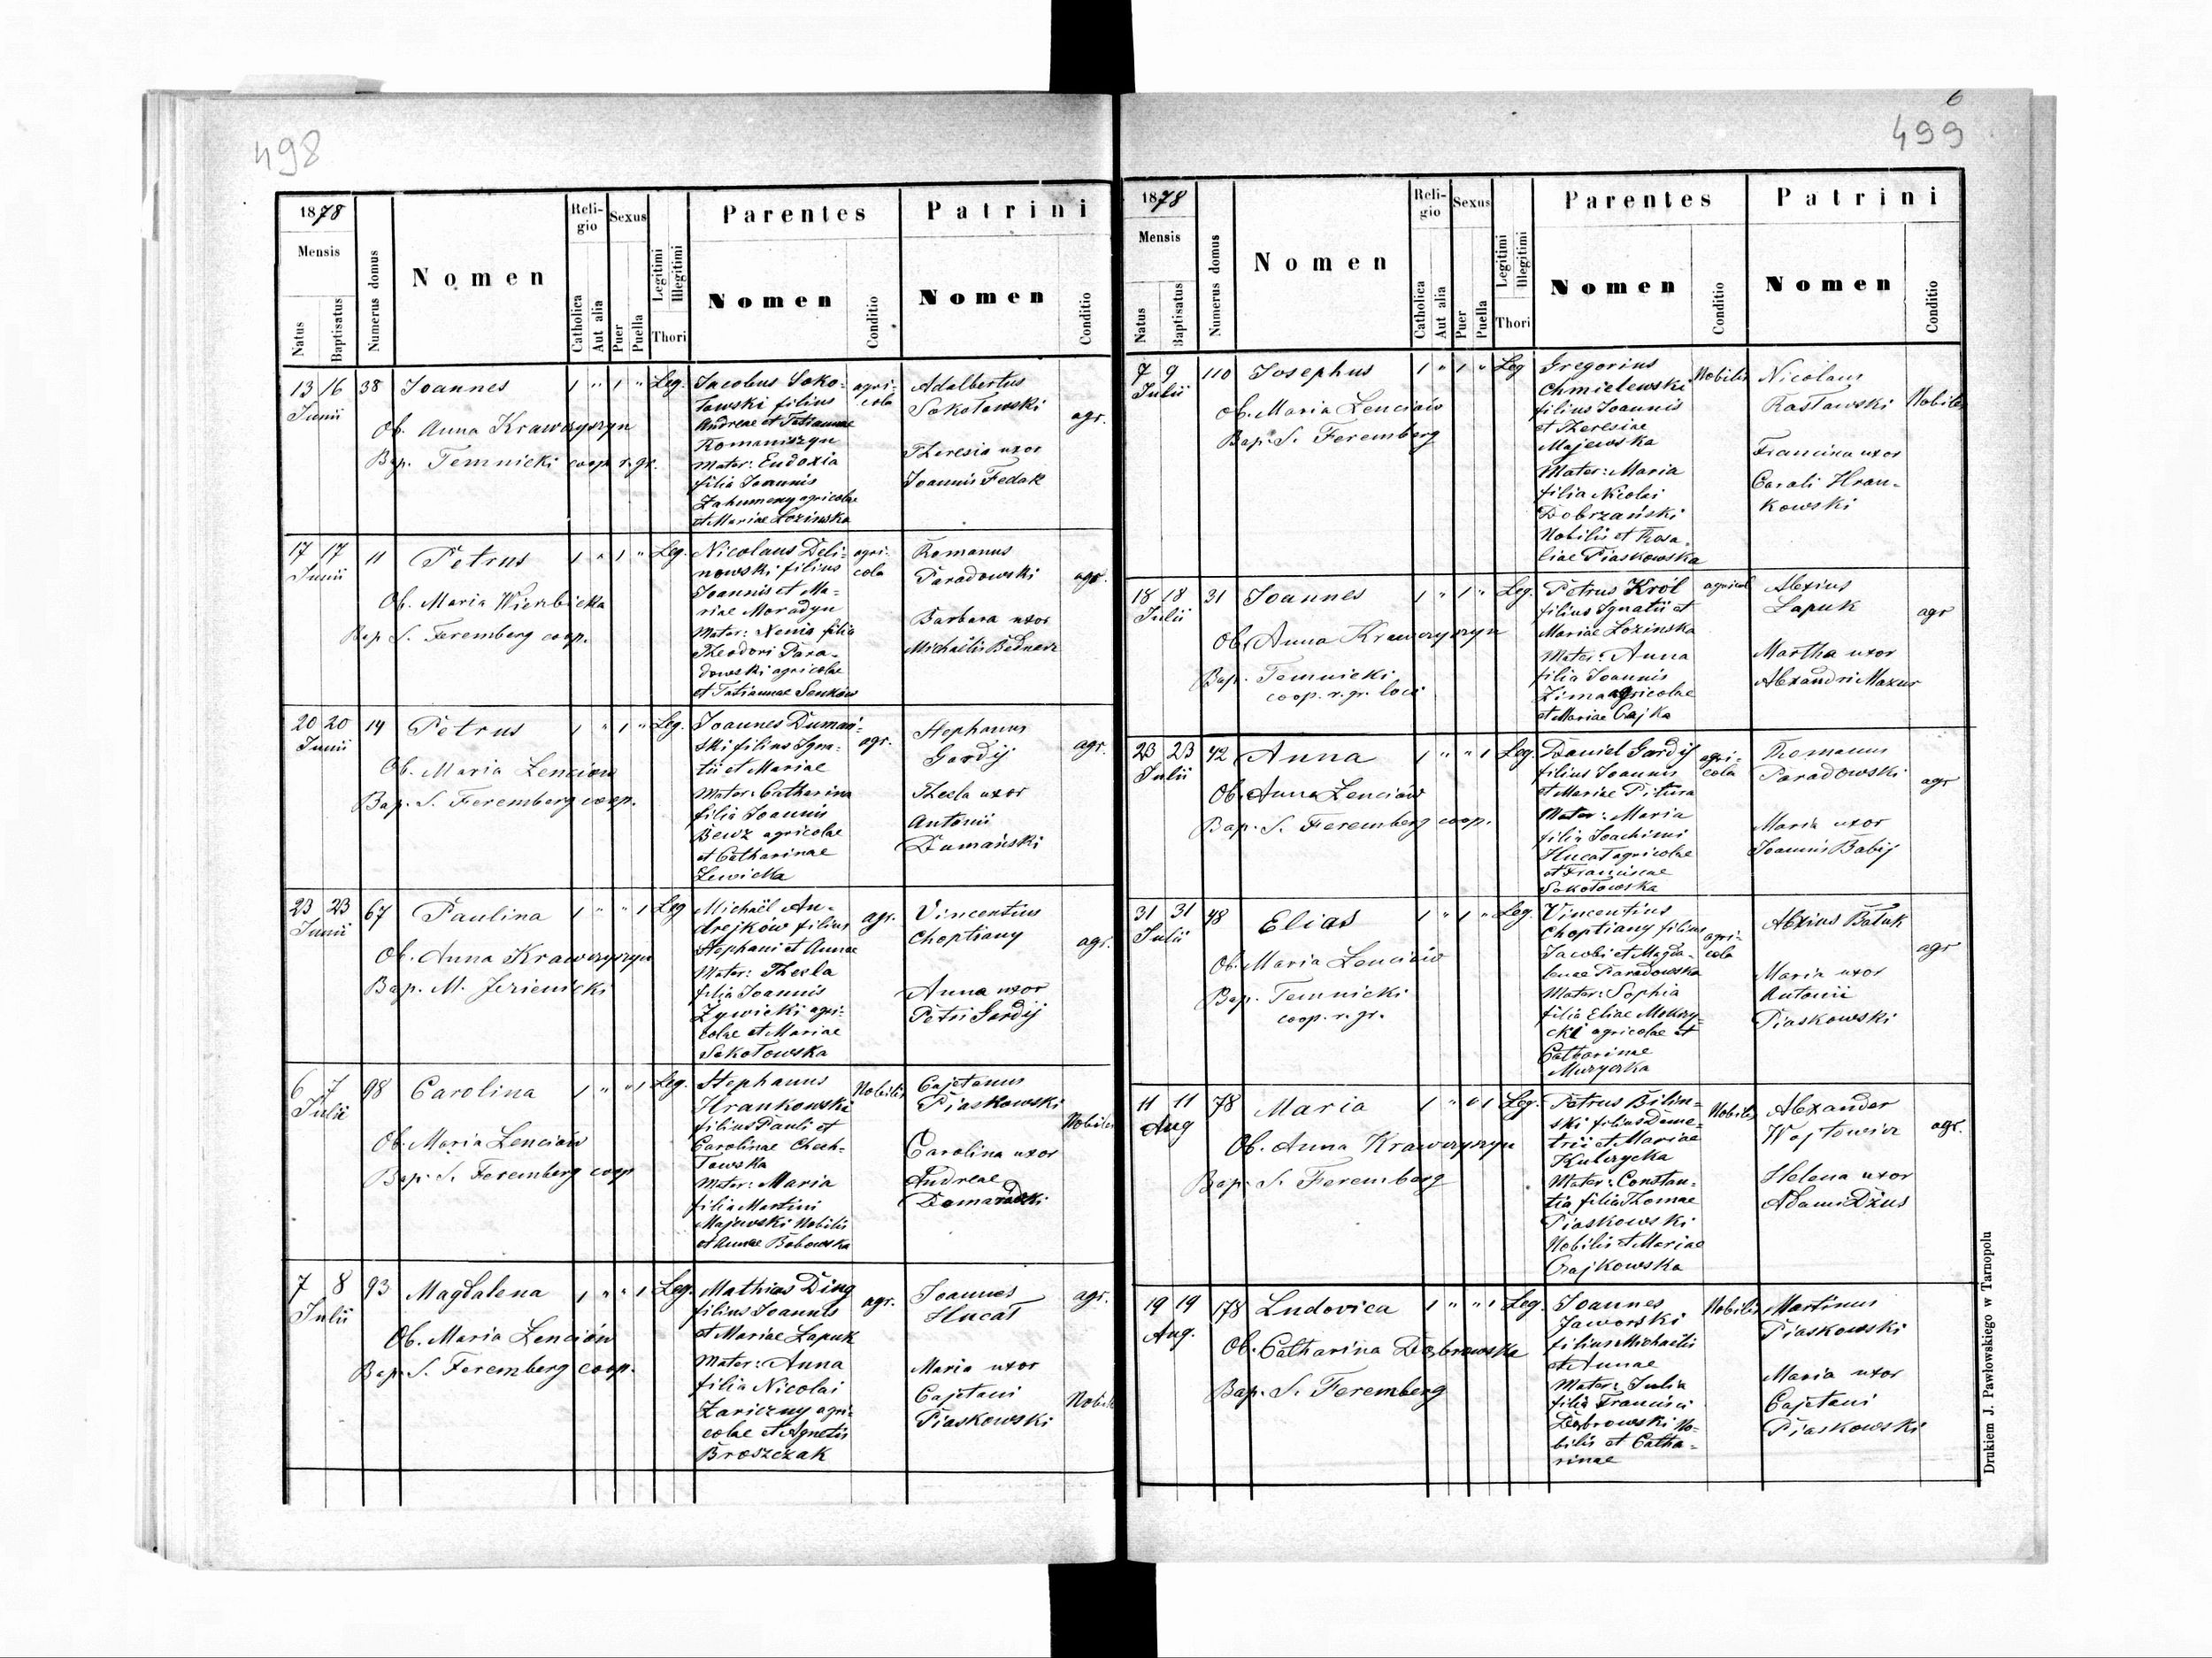 498
1878
Mensis
Natus
Baptisatus
Numerus domus
Nomen
Religio
Catholica
Aut alia
Sexus
Puer
Puella
Legitimi
Illegitimi
Thori
Parentes
Nomen
Conditio
Patrini
Nomen
Conditio
13 16 38 Joannes 1 " 1 " Leg.
Junii
Ob. Anna Krawczyszyn
Bap. Temnicki coop. r. gr.
Jacobus Soko-
łowski filius
Andreae et Tatiannae
Romaniszyn
Mater: Eudoxia
filia Joannis
Zahumeny agricolae
et Mariae Łozinska
agri-
cola
Adalbertus
Sokołowski
Theresia uxor
Joannis Fedak
agr.
17 17 11 Petrus 1 " 1 " Leg.
Junii
Ob. Maria Wierzbicka
Bap. S. Feremberg coop.
Nicolaus Deli-
nowski filius
Joannis et Ma-
riae Moradyn
Mater: Xenia filia
Theodori Para-
dowski agricolae
et Tatiannae Senków
agri-
cola
Romanus
Paradowski
Barbara uxor
Michaëlis Bednarz
agr.
20 20 14 Petrus 1 " 1 " Leg.
Junii
Ob. Maria Lenciów
Bap. S. Feremberg coop.
Joannes Dumań-
ski filius Igna-
tii et Mariae
Mater: Catharina
filia Joannis
Bewz agricolae
et Catharinae
Lewicka
agr.
Stephanus
Gardij
Thecla uxor
Antonii
Dumański
agr.
23 23 67 Paulina 1 " " 1 Leg
Junii
Ob. Anna Krawczyszyn
Bap. M. Jezienicki
Michaël An-
drejków filius
Stephani et Annae
Mater: Thecla
filia Joannis
Żywicki agri-
colae et Mariae
Sokołowska
agr.
Vincentius
Choptiany
Anna uxor
Petri Gardij
agr.
6 7 98 Carolina 1 " " 1 Leg.
Julii
Ob. Maria Lenciów
Bap. S. Feremberg coop
Stephanus
Hrankowski
filius Pauli et
Carolinae Chech-
łowska
Mater: Maria
filia Martini
Majewski Nobilis
et Annae Bobowska
Nobilis
Cajetanus
Piaskowski
Carolina uxor
Andreae
Domaradzki
Nobilis
7 8 93 Magdalena 1 " " 1 Leg.
Julii
Ob. Maria Lenciów
Bap. S. Feremberg coop.
Mathias Ding
filius Joannis
et Mariae Łapuk
Mater: Anna
filia Nicolai
Zariczny agri-
colae et Agnetis
Broszczak
agr.
Joannes
Hucał
Maria uxor
Cajetani
Piaskowski
agr.
Nobilis
6
499
1878
Mensis
Natus
Baptisatus
Numerus domus
Nomen
Religio
Catholica
Aut alia
Sexus
Puer
Puella
Legitimi
Illegitimi
Thori
Parentes
Nomen
Conditio
Patrini
Nomen
Conditio
7 9 110 Josephus 1 " 1 " Leg
Julii
Ob. Maria Lenciów
Bap. S. Feremberg
Gregorius
Chmielewski
filius Joannis
et Theresiae
Majewska
Mater: Maria
filia Nicolai
Dobrzański
Nobilis et Rosa-
liae Piaskowska
Nobilis
Nicolaus
Rastawski
Francisca uxor
Caroli Hran-
kowski
Nobilis
18 18 31 Joannes 1 " 1 " Leg.
Julii
Ob. Anna Krawczyszyn
Bap. Temnicki
coop. r. gr. loci
Petrus Król
filius Ignatii et
Mariae Łozinska
Mater: Anna
filia Joannis
Zima agricolae
et Mariae Czajka
agricola
Alexius
Łapuk
Martha uxor
Alexandri Mazur
agr
23 23 42 Anna 1 " " 1 Leg.
Julii
Ob. Anna Lenciów
Bap. S. Feremberg coop.
Daniel Gardij
filius Joannis
et Mariae Pitura
Mater: Maria
filia Joachimi
Hucał agricolae
et Franciscae
Sokołowska
agri-
cola
Romanus
Paradowski
Maria uxor
Joannis Babij
agr
31 31 48 Elias 1 " 1 " Leg.
Julii
Ob. Maria Lenciów
Bap. Temnicki
coop. r. gr.
Vincentius
Choptiany filius
Jacobi et Magda-
lenae Paradowska
Mater: Sophia
filia Eliae Mokrzy-
cki agricolae et
Catharinae
Muzyczka
agri-
cola
Alexius Batuk
Maria uxor
Antonii
Piaskowski
agr
11 11 78 Maria 1 " " 1 Leg.
Aug
Ob. Anna Krawczyszyn
Bap. S. Feremberg
Petrus Bilin-
ski filius Deme-
trii et Mariae
Kulczycka
Mater: Constan-
tia filia Thomae
Piaskowski
Nobilis et Mariae
Czajkowska
Nobilis
Alexander
Wojtowicz
Helena uxor
Adami Dżus
agr.
19 19 178 Ludovica 1 " " 1 Leg.
Aug.
Ob. Catharina Dąbrowska
Bap. S. Feremberg
Joannes
Jaworski
filius Michaëlis
et Annae
Mater: Julia
filia Francisci
Dąbrowski No-
bilis et Catha-
rinae
Nobilis
Martinus
Piaskowski
Maria uxor
Cajetani
Piaskowski
Drukiem J. Pawłowskiego w Tarnopolu